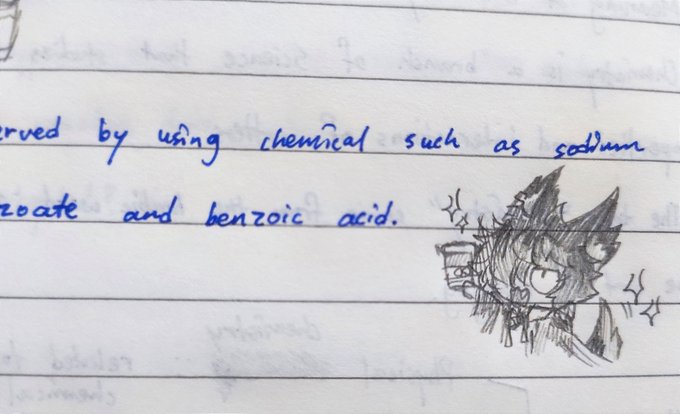 erved by using chemical such as sodium
zoate and benzoic acid.